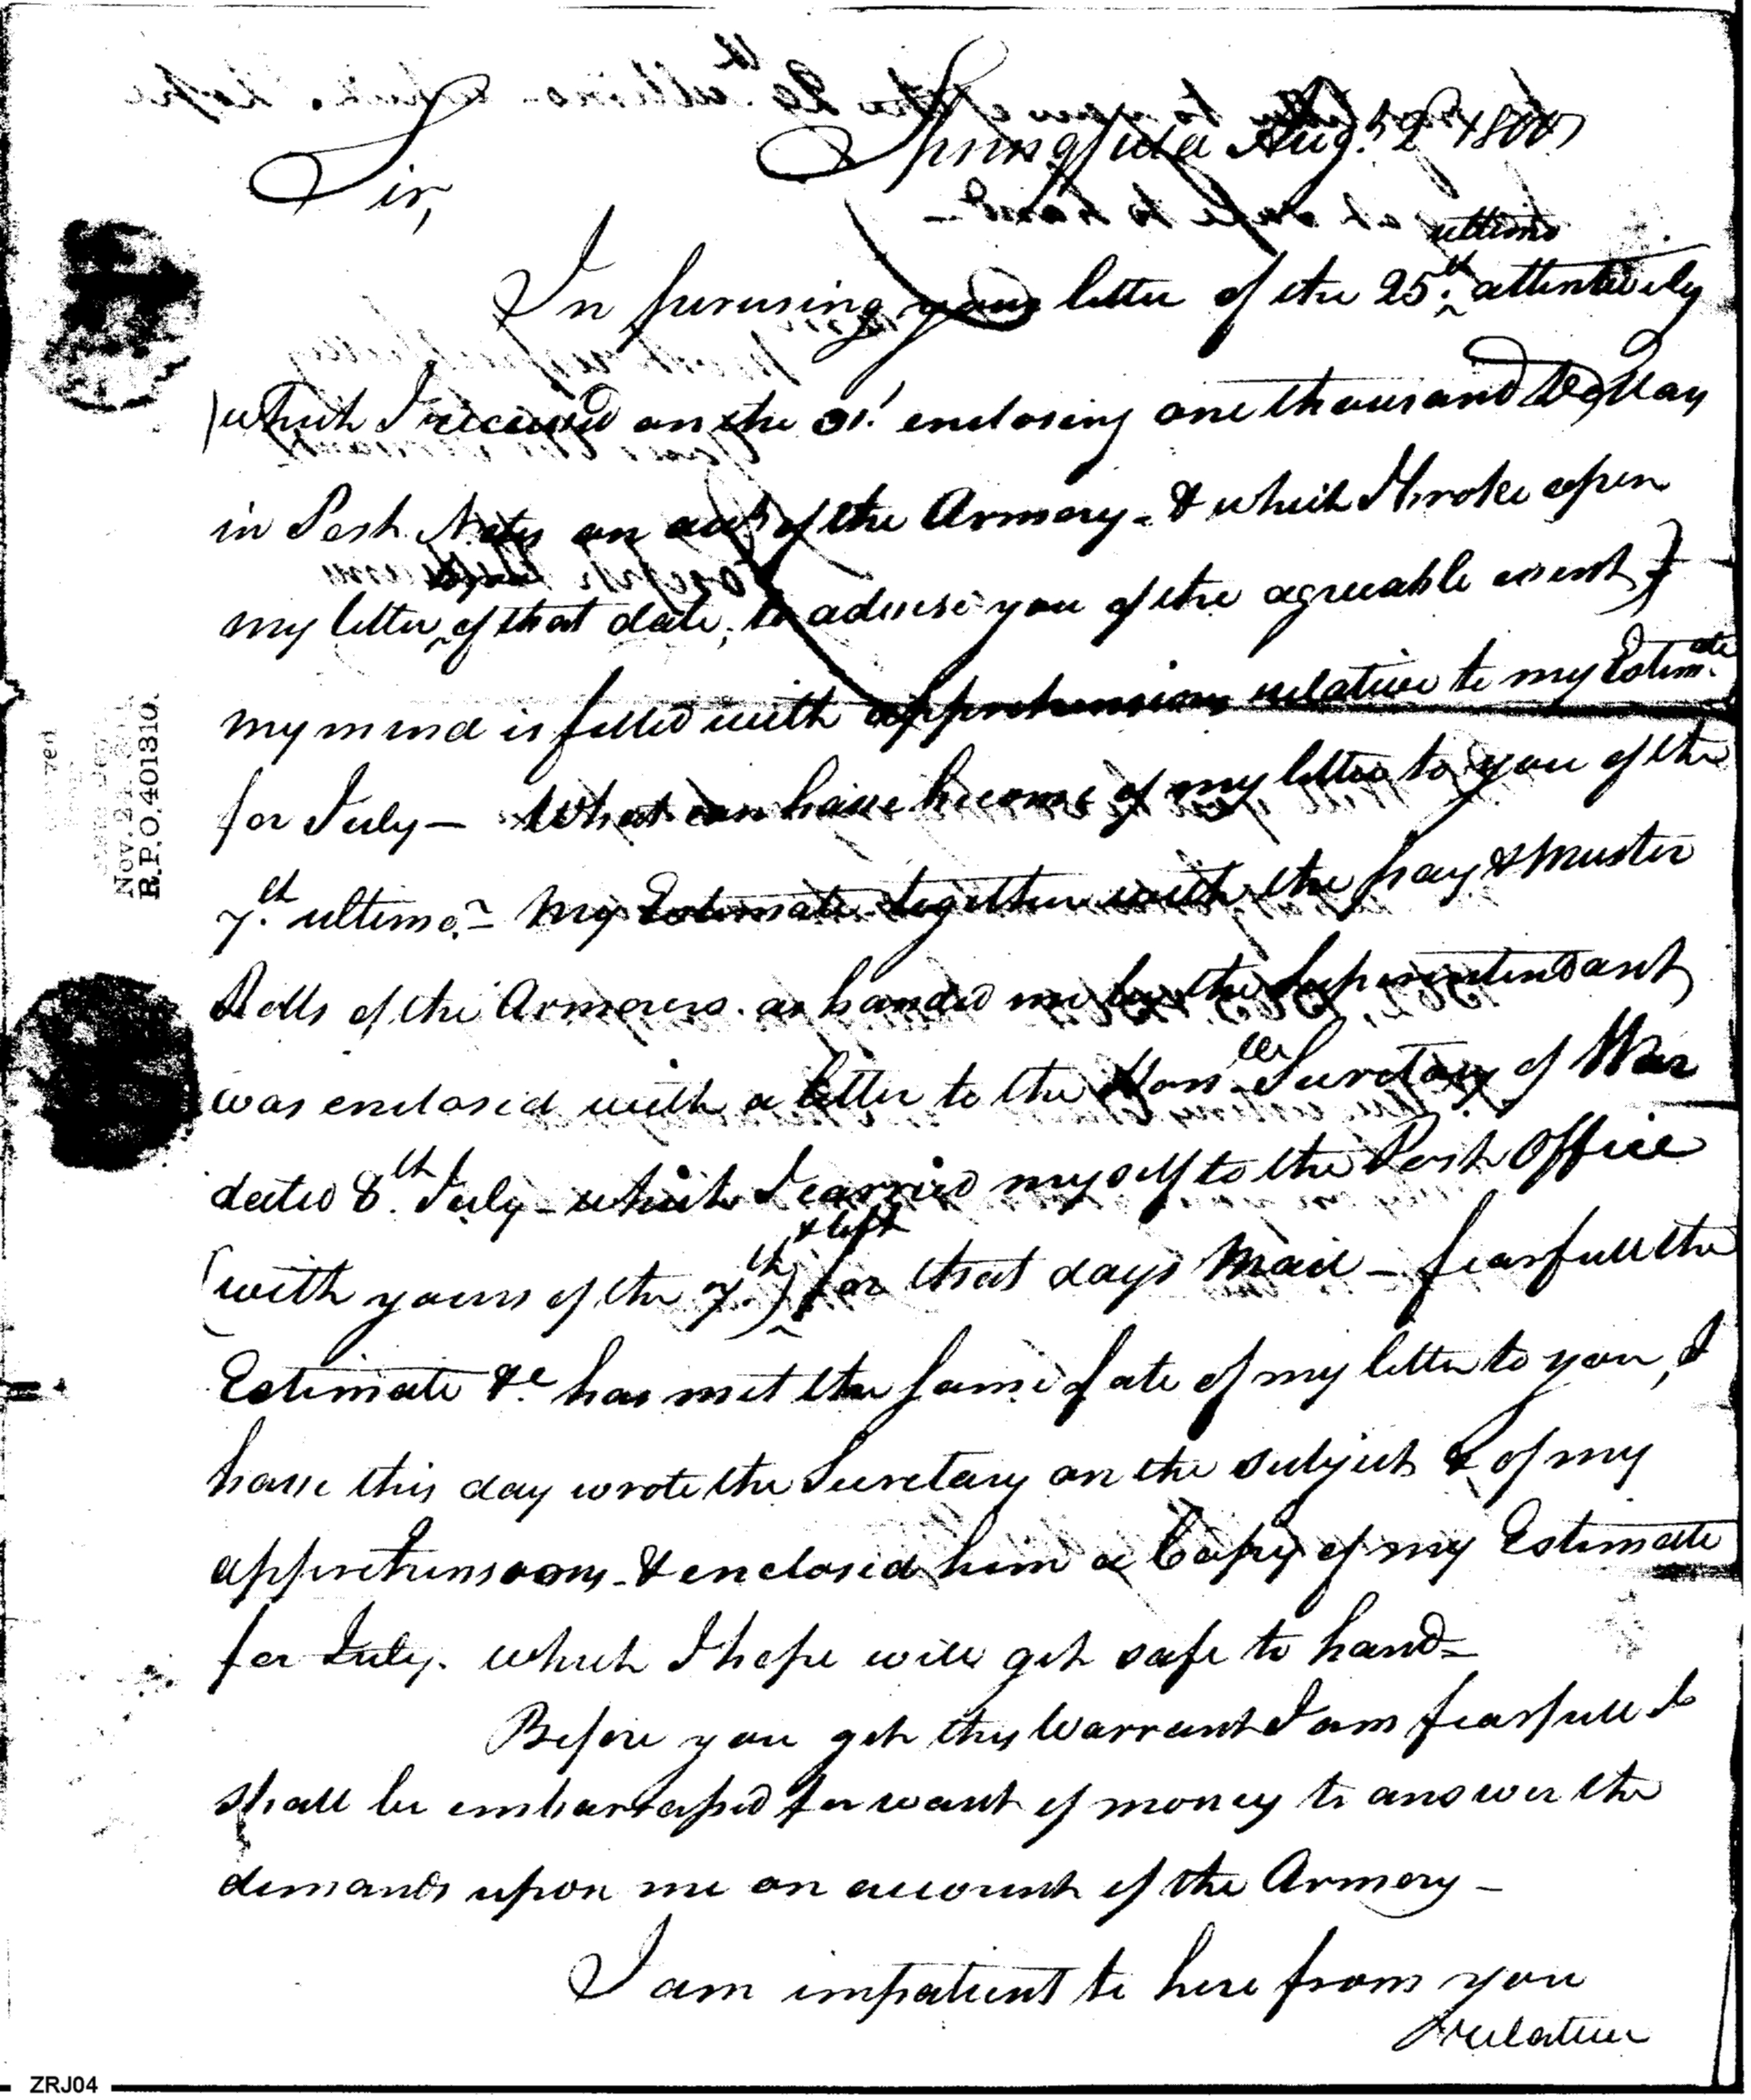 Springfield Augt. 2d 1800
Sir,
ultimo
In perusing your letter of the 25th. attentively
(which I received on the 31t. enclosing one thousand Dollars
in Post Notes on acct of the Armory - & which I broke open
my letter of that date, to advise you of the agreeable event)
my mind is filled with apprehensions relative to my Estimate
for July - What can have become of my letter to you of the
7.th ultimo? - My Estimate together with the pay & Muster
Rolls of the Armorers. as handed me by the Superintendant
was enclosed with a letter to the Honble Secretary of War
dated 8.th July - which I carried myself to the Post Office
& left
(with yours of the 7.th) for that days Mail - fearfull the
Estimate &c has met the same fate of my letter to you, I
have this day wrote the Secretary on the subject & of my
apprehensions - & enclosed him a Copy of my Estimate
for July. which I hope will get safe to hand -
Before you get this Warrant I am fearfull I
shall be embarrassed for want of money to answer the
demands upon me on account of the Armory -
I am impatient to here from you
relative
Nov. 21
R.P.O. 401310.
ZRJ04